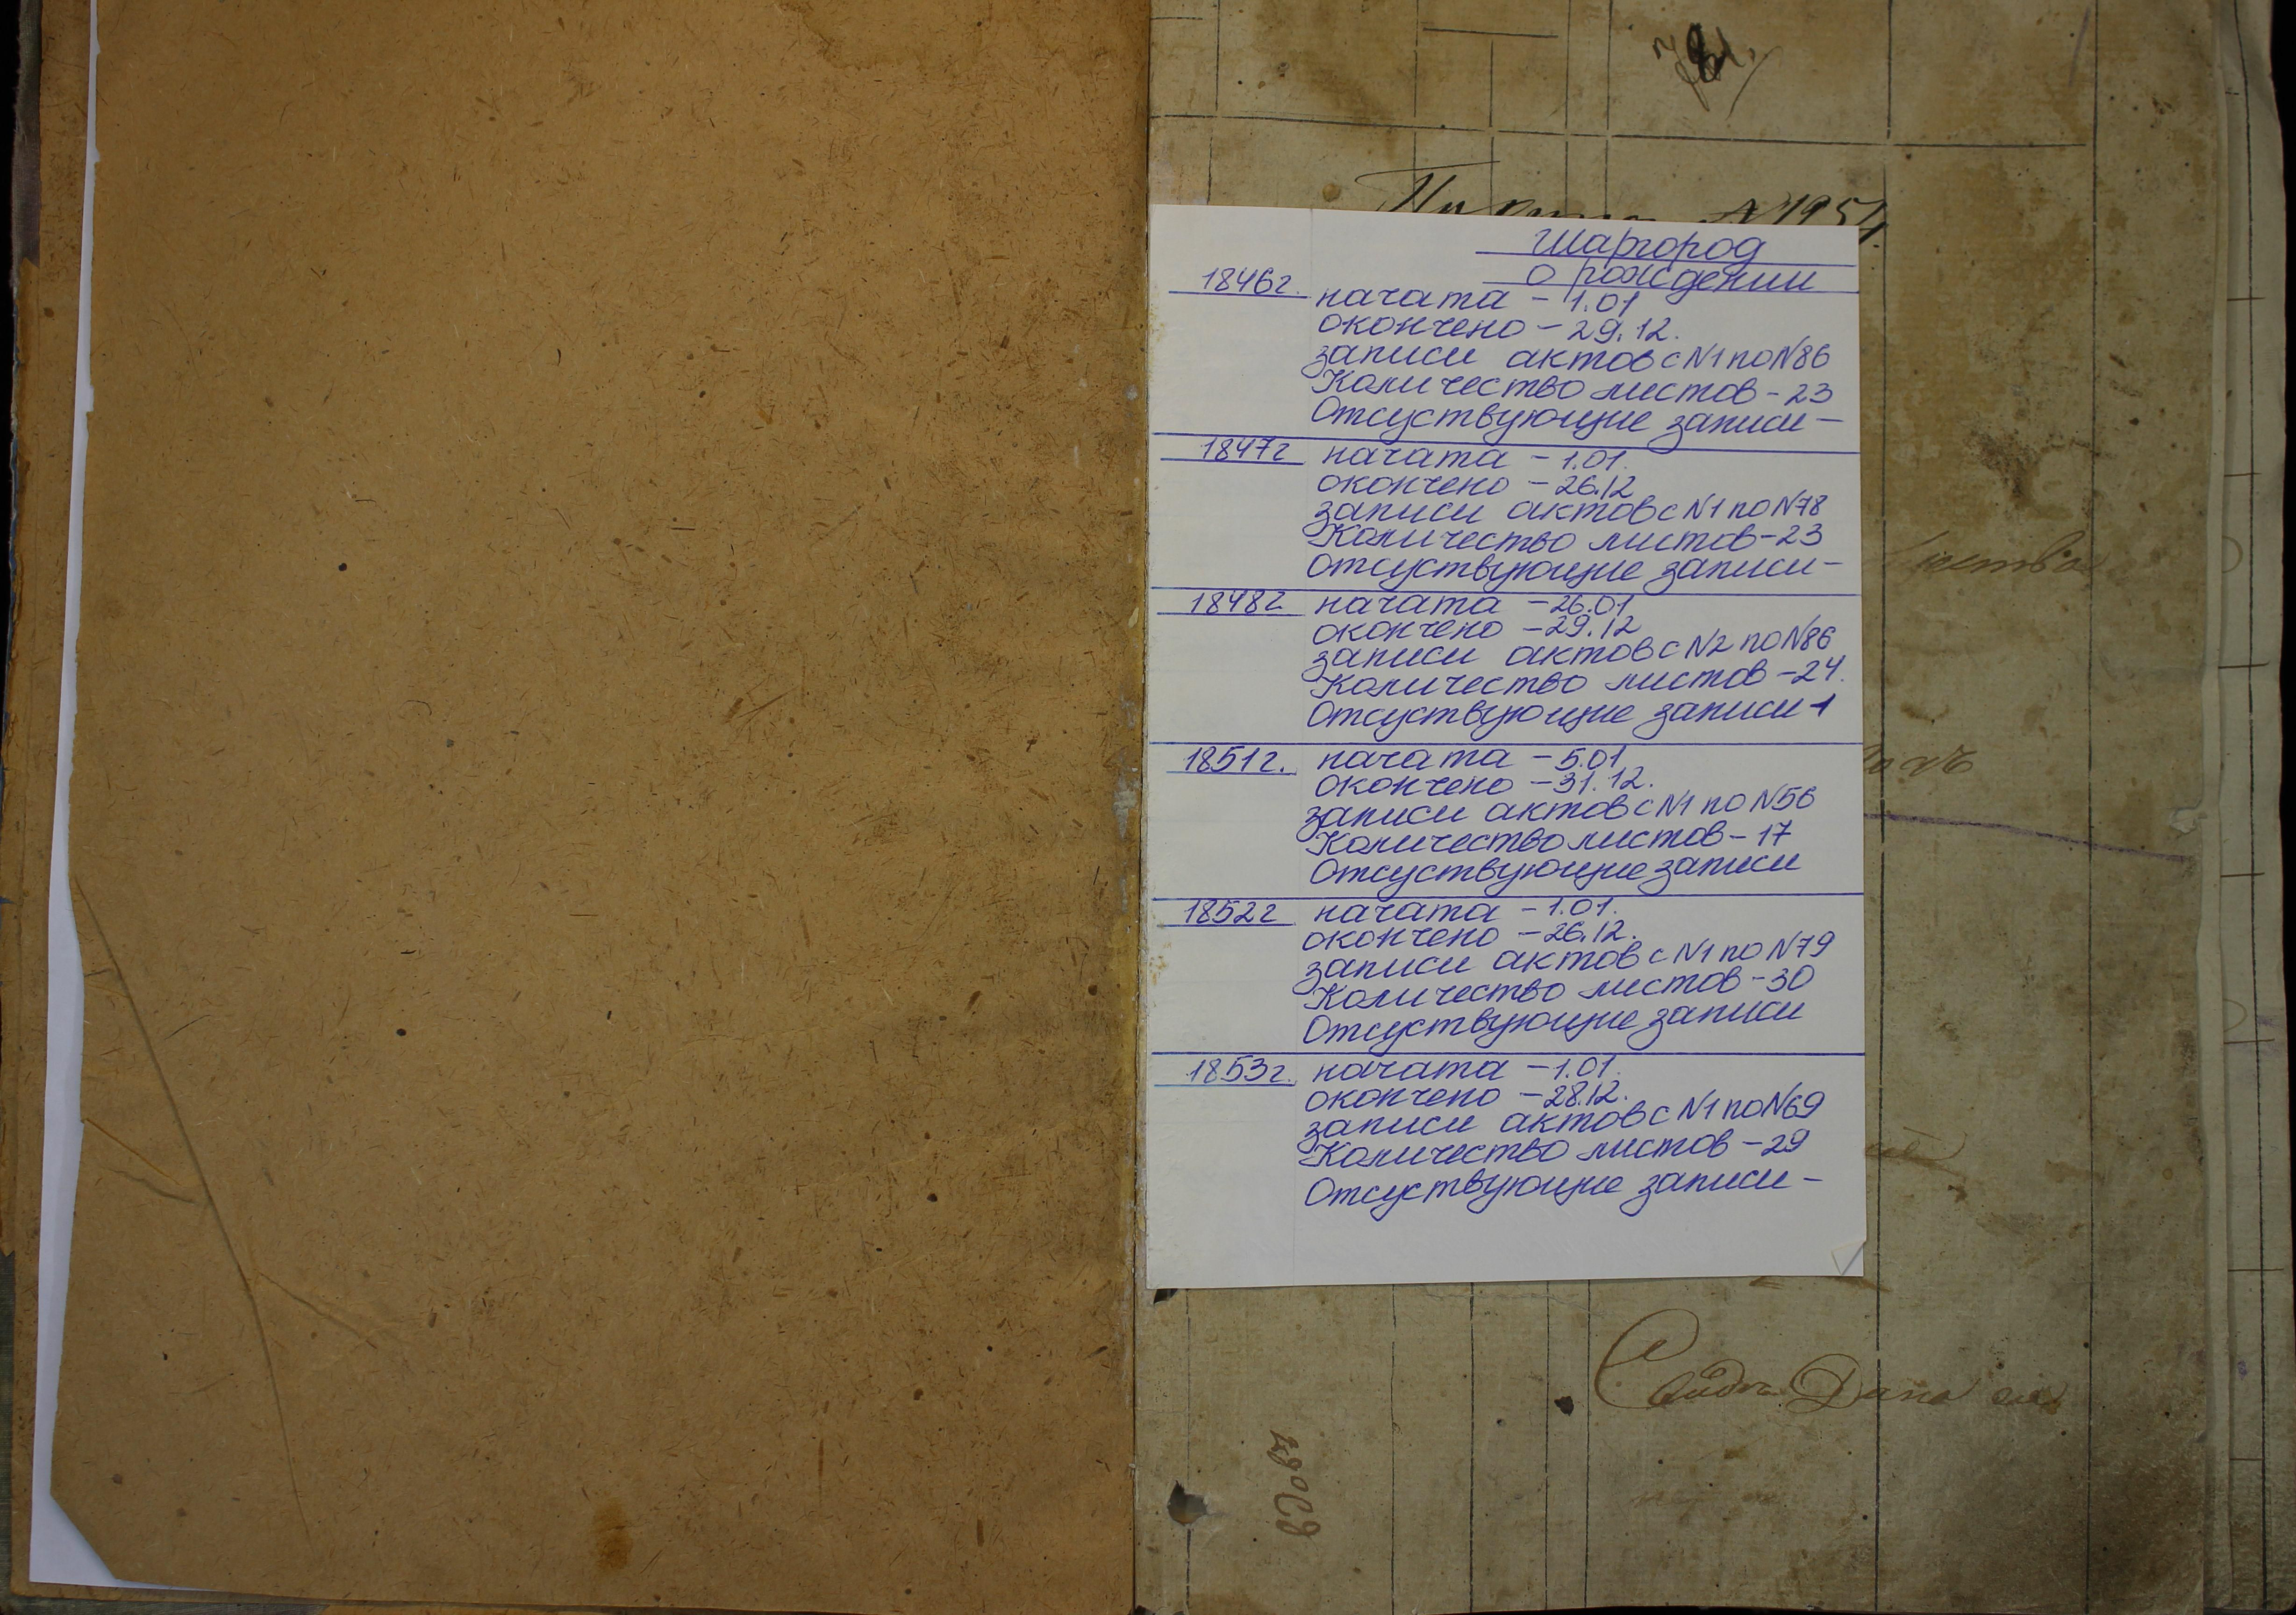 N1954.
Шаргород
о рождении
1846г.
начата - 1.01
окончено - 29.12.
записи актов с N1 по N86
Количество листов - 23
Отсуствующие записи -
1847г
начата - 1.01.
окончено - 26.12
записи актов с N1 по N78
Количество листов - 23
Отсуствующие записи -
1848г.
начата - 26.01
окончено - 29.12
записи актов с N2 по N86
Количество листов - 24.
Отсуствующие записи 1
1851г.
начата - 5.01
окончено - 31.12.
записи актов с N1 по N56
Количество листов - 17
Отсуствующие записи
1852г
начата - 1.01.
окончено - 26.12.
записи актов с N1 по N79
Количество листов - 30
Отсуствующие записи
1853г.
начата - 1.01.
окончено - 28.12.
записи актов с N1 по N69
Количество листов - 29
Отсуствующие записи -